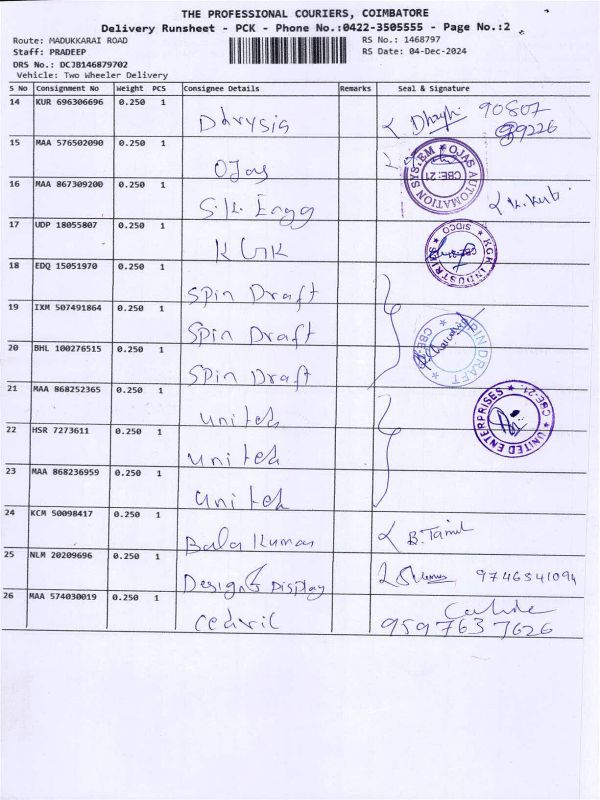 THE PROFESSIONAL COURIERS, COIMBATORE
Delivery Runsheet - PCK - Phone No.:0422-3505555 - Page No.:2
Route: MADUKKARAI ROAD RS No.: 1468797
Staff: PRADEEP RS Date: 04-Dec-2024
DRS No.: DCJB146879702
Vehicle: Two Wheeler Delivery
S No Consignment No Weight PCS Consignee Details Remarks Seal & Signature
14 KUR 696306696 0.250 1 Dhrysia 90807
99226
15 MAA 576502090 0.250 1 Ojas OJAS AUTOMATION SYSTEM CBE: 21
16 MAA 867309200 0.250 1 S.K. Engg
17 UDP 18055807 0.250 1 KGK KGK INDUSTRIES SIDCO
18 EDQ 15051970 0.250 1 Spin Draft
19 IXM 507491864 0.250 1 Spin Draft SPIN DRAFT CBE
20 BHL 100276515 0.250 1 Spin Draft
21 MAA 868252365 0.250 1 United UNITED ENTERPRISES CBE-21
22 HSR 7273611 0.250 1 United
23 MAA 868236959 0.250 1 United
24 KCM 50098417 0.250 1 Bala Kumar B. Tamil
25 NLM 20209696 0.250 1 Design & Display 9746341094
26 MAA 574030019 0.250 1 cedric
9597637626